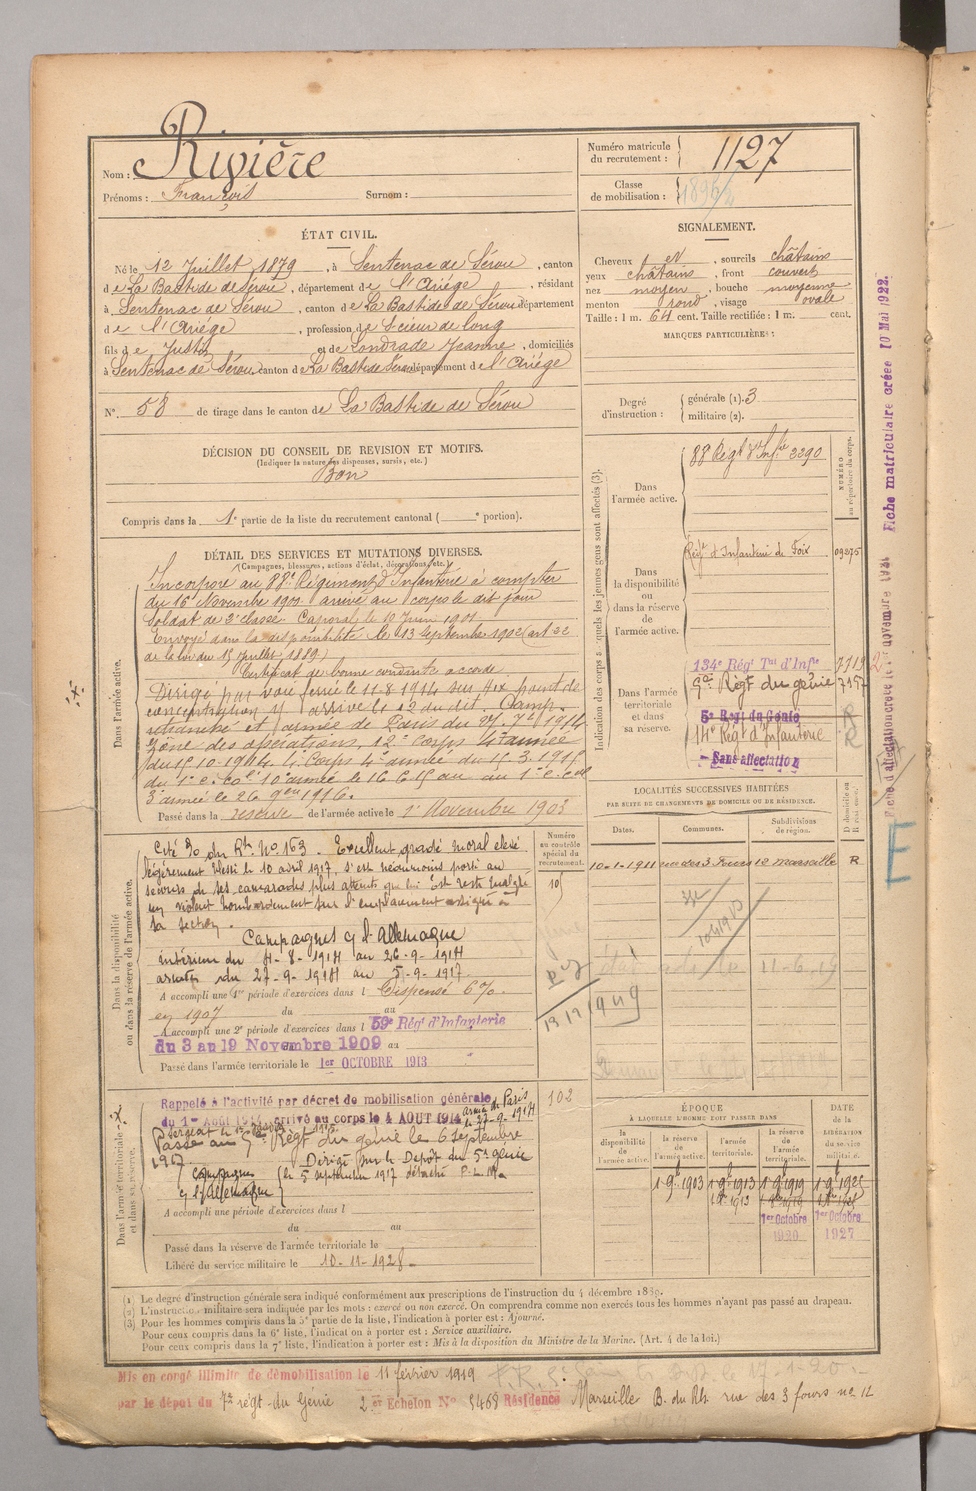 Nom : Rivière
Prénoms : François Surnom :
Numéro matricule du recrutement : 1127
Classe de mobilisation :
ÉTAT CIVIL.
Né le 12 Juillet 1879, à Sentenac de Sérou, canton
de La Bastide de Sérou, département de l'Ariége, résidant
à Sentenac de Sérou, canton de La Bastide de Sérou département
de l'Ariége, profession de Scieur de long
fils de Justin et de Londrade Jeanne, domiciliés
à Sentenac de Sérou, canton de La Bastide Sérou département de l'Ariége
N° 58 de tirage dans le canton de La Bastide de Sérou
SIGNALEMENT.
Cheveux et, sourcils châtains
yeux châtains, front couvert
nez moyen, bouche moyenne
menton rond, visage ovale
Taille : 1 m. 64 cent. Taille rectifiée : 1 m. cent.
MARQUES PARTICULIÈRES :
Degré d'instruction : générale (1). 3
militaire (2).
DÉCISION DU CONSEIL DE REVISION ET MOTIFS.
(Indiquer la nature des dispenses, sursis, etc.)
Bon
Compris dans la 1e partie de la liste du recrutement cantonal ( e portion).
DÉTAIL DES SERVICES ET MUTATIONS DIVERSES.
(Campagnes, blessures, actions d'éclat, décorations, etc.)
Dans l'armée active.
Incorporé au 88e Régiment d'Infanterie à compter
du 16 Novembre 1900 arrivé au corps le dit jour
Soldat de 2e classe. Caporal le 10 Juin 1901
Envoyé dans la disponibilité le 13 Septembre 1902 (art 22
de la loi du 15 Juillet 1889)
Certificat de bonne conduite accordé
Dirigé par voie ferrée le 11-8-1914 sur Aix point de
concentration y arrive le 12 du dit. Camp
retranché et armée de Paris du 27 7bre 1914
Zone des opérations, 12e corps 4e armée
du 15-10-1914. 4e Corps 4e armée du 15.3.1915
du 1er c. col 10e armée le 16 6 15 au 1er c. col
3e armée le 26 1916.
Passé dans la réserve de l'armée active le 1er Novembre 1903
Indication des corps auxquels les jeunes gens sont affectés (3).
NUMÉRO au répertoire du corps.
Dans l'armée active.
88 Régt d'Infie 3290
Dans la disponibilité ou dans la réserve de l'armée active.
Régt d'Infanterie de Foix 09275
Dans l'armée territoriale et dans sa réserve.
134e Régt Tal d'Infie 7719
7e Régt du génie 7157
5e Régt du Génie
14e Régt d'Infanterie
Sans affectation
Dans la disponibilité ou dans la réserve de l'armée active.
Cité Rt No 163. Excellent gradé moral elevé
légèrement blessé le 10 avril 1917, s'est néanmoins porté au
secours de ses camarades plus atteints que lui Est resté malgré
un violent bombardement sur l'emplacement assigné à
sa section.
Campagnes c/ l'Allemagne
intérieur du 4-8-1914 au 26-9-1914
armées du 27-9-1914 au 5-9-1917
A accompli une 1re période d'exercices dans l Dispensé
en 1907 du au
A accompli une 2e période d'exercices dans l 59e Régt d'Infanterie
du 3 au 19 Novembre 1909 au
Passé dans l'armée territoriale le 1er OCTOBRE 1913
Numéro au contrôle spécial du recrutement.
102
LOCALITÉS SUCCESSIVES HABITÉES
PAR SUITE DE CHANGEMENTS DE DOMICILE OU DE RÉSIDENCE.
Dates. Communes. Subdivisions de région. D domicile ou R résidence.
10-1-1911 rue des 3 Fours 12 Marseille R
Dans l'armée territoriale et dans sa réserve.
Rappelé à l'activité par décret de mobilisation générale
du 1er Août 1914 arrivé au corps le 4 AOUT 1914 armée de Paris le 27-9-1914
Passé au Régt du génie le 6 Septembre
1917 Dirigé sur le Dépôt du 5e génie
Campagne c/ l'Allemagne le 5 septembre 1917 détaché P-L-M
A accompli une période d'exercices dans l
du au
Passé dans la réserve de l'armée territoriale le
Libéré du service militaire le 10-11-1928
ÉPOQUE
À LAQUELLE L'HOMME DOIT PASSER DANS
la disponibilité de l'armée active. la réserve de l'armée active. l'armée territoriale. la réserve de l'armée territoriale.
DATE de la LIBÉRATION du service militaire.
1 9bre 1903 1 9bre 1913 1 9bre 1919 1 9bre 1925
1er Octobre 1920 1er Octobre 1927
(1) Le degré d'instruction générale sera indiqué conformément aux prescriptions de l'instruction du 4 décembre 1889.
(2) L'instruction militaire sera indiquée par les mots : exercé ou non exercé. On comprendra comme non exercés tous les hommes n'ayant pas passé au drapeau.
(3) Pour les hommes compris dans la 5e partie de la liste, l'indication à porter est : Ajourné.
Pour ceux compris dans la 6e liste, l'indication à porter est : Service auxiliaire.
Pour ceux compris dans la 7e liste, l'indication à porter est : Mis à la disposition du Ministre de la Marine. (Art. 4 de la loi.)
Mis en congé illimité de démobilisation le 11 février 1919
par le dépôt du 7e régt du Génie 2er Echelon N° 5468 Résidence Marseille B. du Rh. rue des 3 fours no 12
Fiche matriculaire créée 10 Mai 1922.
E